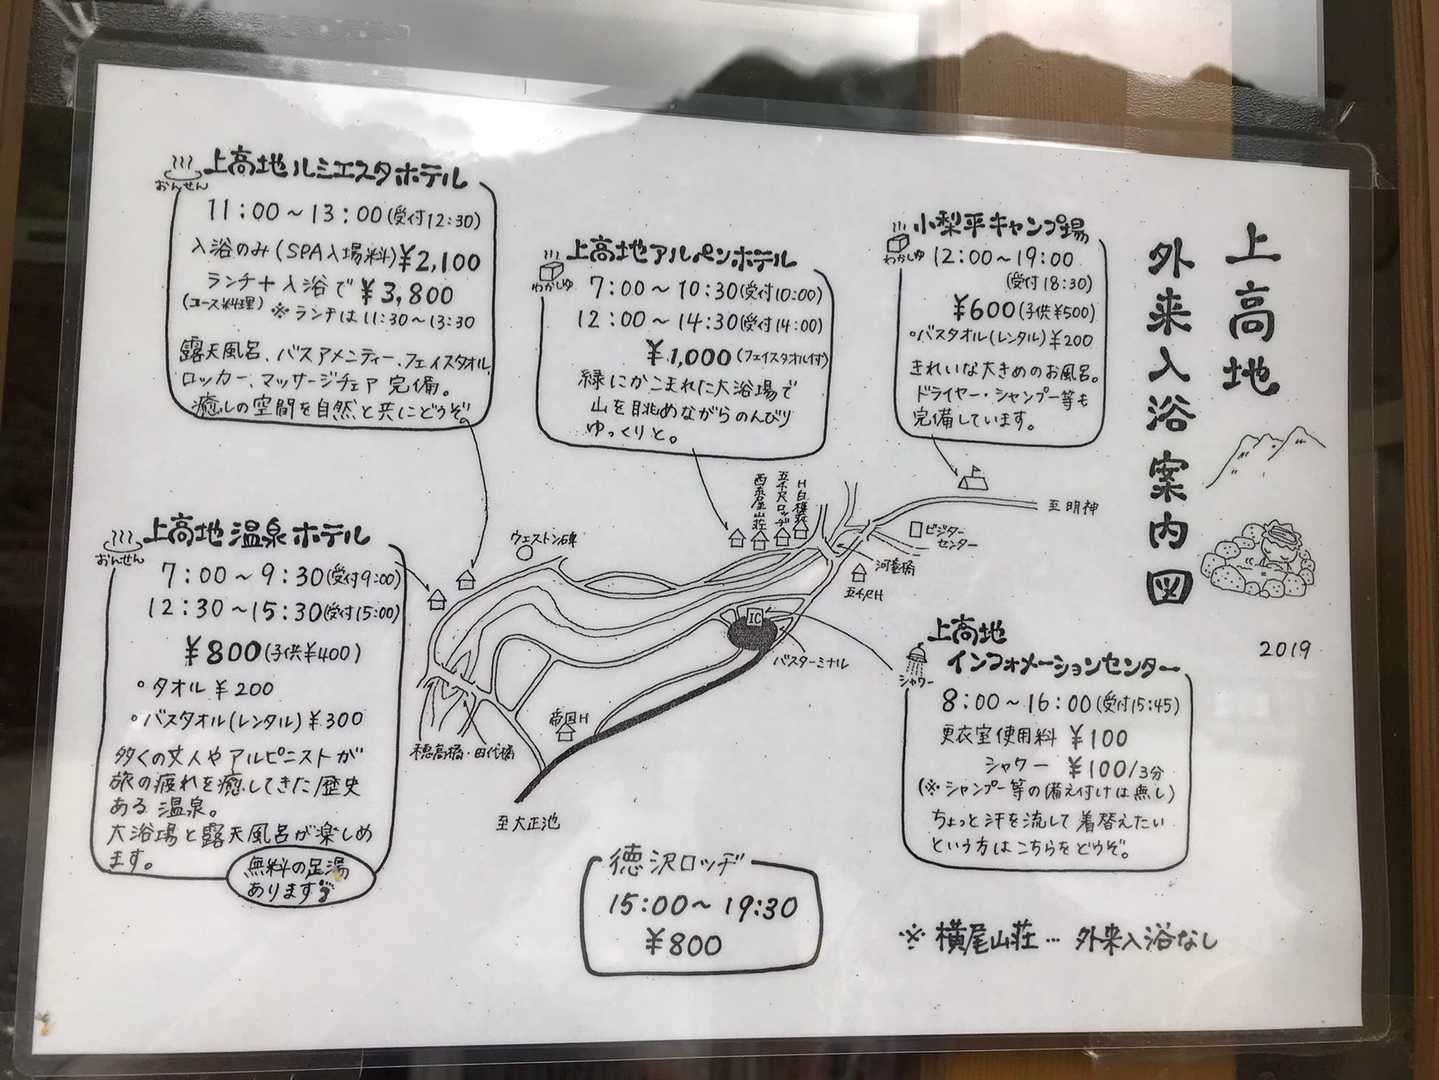 上高地
外来入浴案内図
2019
上高地ルミエスタホテル
おんせん
11:00～13:00(受付12:30)
入浴のみ(SPA入場料)¥2,100
ランチ+入浴で¥3,800
(コース料理) ※ランチは11:30～13:30
露天風呂、バスアメニティー、フェイスタオル、
ロッカー、マッサージチェア完備。
癒しの空間を自然と共にどうぞ。
上高地アルペンホテル
わかしゆ
7:00～10:30(受付10:00)
12:00～14:30(受付14:00)
¥1,000(フェイスタオル付)
緑にかこまれた大浴場で
山を眺めながらのんびり
ゆっくりと。
小梨平キャンプ場
わかしゆ
12:00～19:00
(受付18:30)
¥600(子供¥500)
°バスタオル(レンタル)¥200
きれいな大きめのお風呂。
ドライヤー・シャンプー等も
完備しています。
上高地温泉ホテル
おんせん
7:00～9:30(受付9:00)
12:30～15:30(受付15:00)
¥800(子供¥400)
°タオル¥200
°バスタオル(レンタル)¥300
多くの文人やアルピニストが
旅の疲れを癒してきた歴史
ある温泉。
大浴場と露天風呂が楽しめ
ます。
無料の足湯
あります
ウェストン碑
西糸屋山荘
五千尺ロッヂ
H白樺荘
至明神
ビジター
センター
河童橋
五千尺H
IC
バスターミナル
帝国H
穂高橋・田代橋
至大正池
上高地
インフォメーションセンター
シャワー
8:00～16:00(受付15:45)
更衣室使用料 ¥100
シャワー ¥100/3分
(※シャンプー等の備え付けは無し)
ちょっと汗を流して着替えたい
という方はこちらをどうぞ。
徳沢ロッヂ
15:00～19:30
¥800
※横尾山荘…外来入浴なし